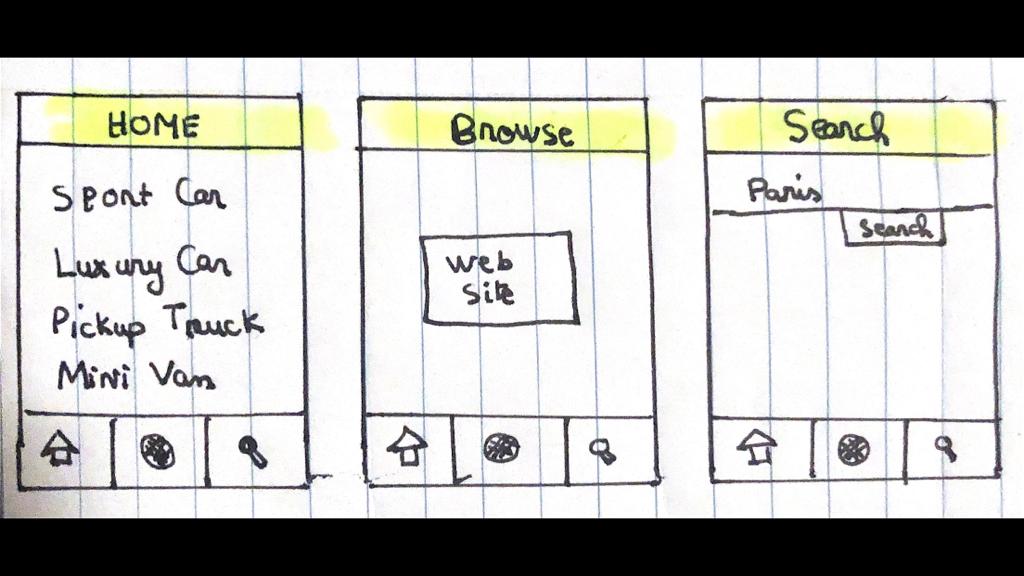 HOME
Sport Car
Luxury Car
Pickup Truck
Mini Van
Browse
Web
Site
Search
Paris
Search